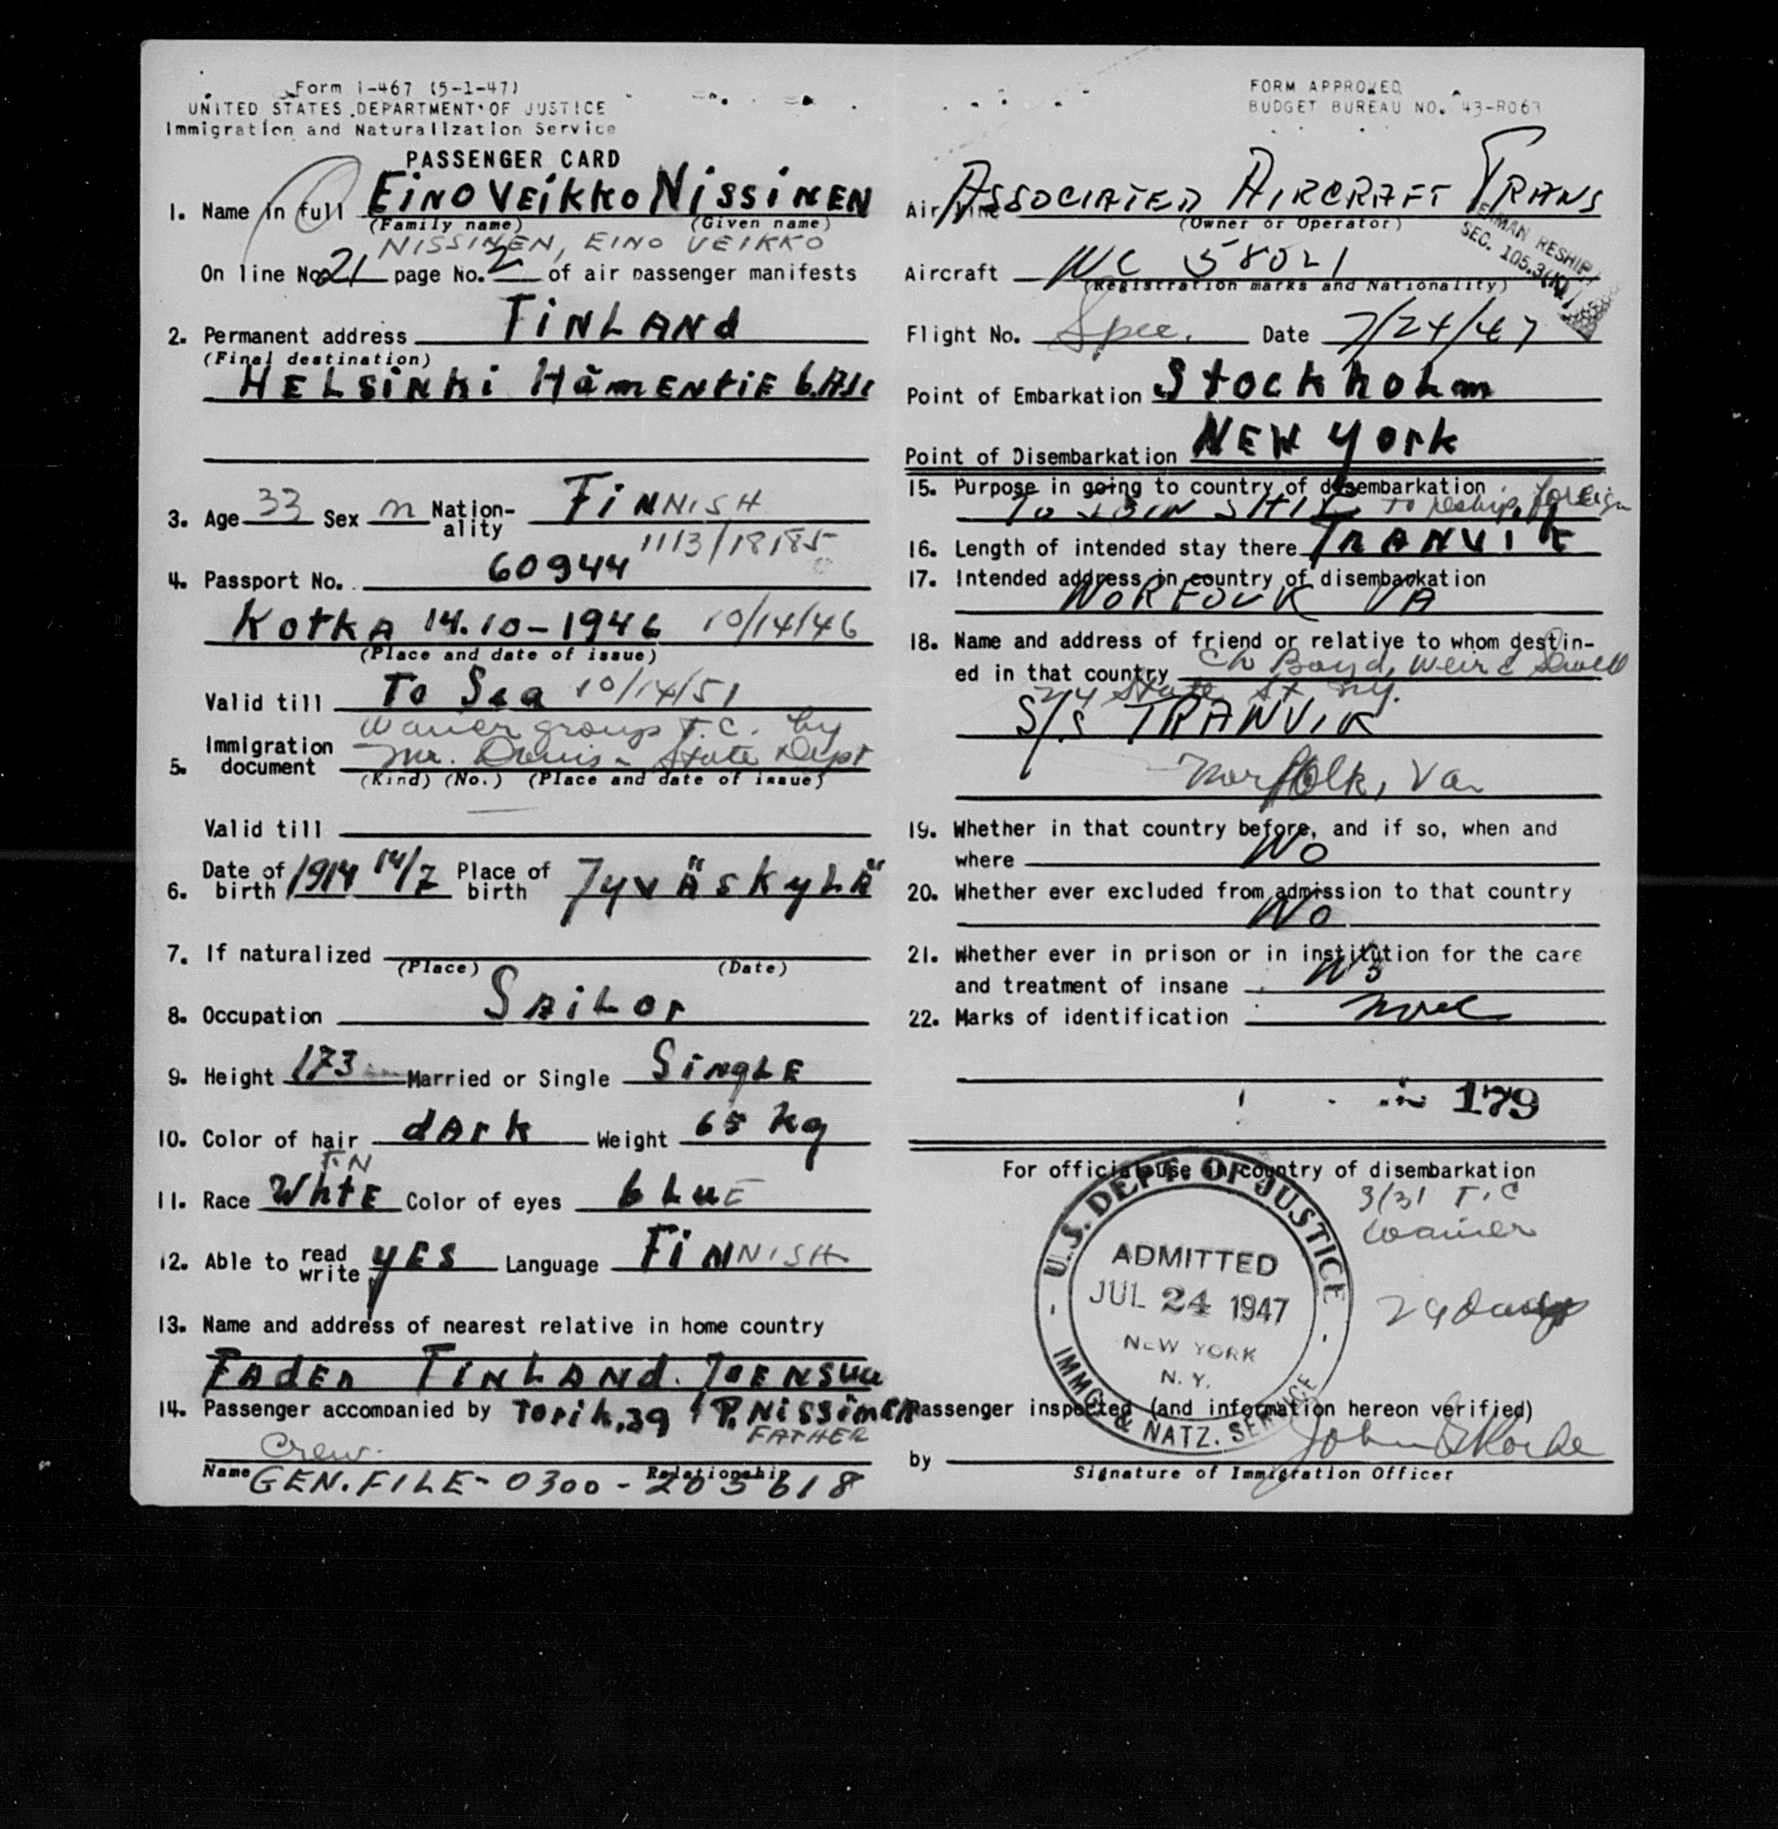 Form I-467 (5-1-47)
UNITED STATES DEPARTMENT OF JUSTICE
Immigration and Naturalization Service
PASSENGER CARD
1. Name in full EiNO VEiKKO NissiNEN
(Family name) (Given name)
NISSINEN, EINO VEIKKO
On line No. 21 page No. 2 of air passenger manifests
2. Permanent address FiNLANd
(Final destination)
HELSiNKi HämENtiE 6.
3. Age 33 Sex m Nation-ality FiNNISH
1113/18185
4. Passport No. 60944
KOtKA 14.10-1946 10/14/46
(Place and date of issue)
Valid till To Sea 10/14/51
Waiver group T.C. by
5. Immigration document Mr. - State Dept
(Kind) (No.) (Place and date of issue)
Valid till
6. Date of birth 1914 14/7 Place of birth JyvÄsKyLÄ
7. If naturalized
(Place) (Date)
8. Occupation SAiLor
9. Height 173 cm Married or Single SiNgLE
10. Color of hair dArk Weight 65 kg
FIN
11. Race WhtE Color of eyes bLuE
12. Able to read write yES Language FiNNISH
13. Name and address of nearest relative in home country
FAdEr FiNLANd. JOENSuu
14. Passenger accompanied by Torik.39 P. NissiNEN
FATHER
Crew.
Name Relationship
GEN. FILE - 0300 - 203618
FORM APPROVED
BUDGET BUREAU NO. 43-R063
Air line ASSOCIATED AIRCRAFT TRANS
(Owner or Operator)
SEAMAN RESHIP
SEC. 105.3
Aircraft NC 58021
(Registration marks and Nationality)
Flight No. Spec. Date 7/24/47
Point of Embarkation StockhoLm
Point of Disembarkation NEW York
15. Purpose in going to country of disembarkation
To JOIN SHIP to reship foreign
16. Length of intended stay there TRANVIK
17. Intended address in country of disembarkation
NORFOLK VA
18. Name and address of friend or relative to whom destin-
ed in that country c/o Boyd, Weir & Sewell
24 State St. N.Y.
S/S TRANVIK
Norfolk, Va.
19. Whether in that country before, and if so, when and
where No
20. Whether ever excluded from admission to that country
No
21. Whether ever in prison or in institution for the care
and treatment of insane No
22. Marks of identification none
179
For official use in country of disembarkation
3/31 T.C
waiver
29 days
U.S. DEPT. OF JUSTICE
ADMITTED
JUL 24 1947
NEW YORK
N. Y.
IMMG. & NATZ. SERVICE
Passenger inspected (and information hereon verified)
by John
Signature of Immigration Officer